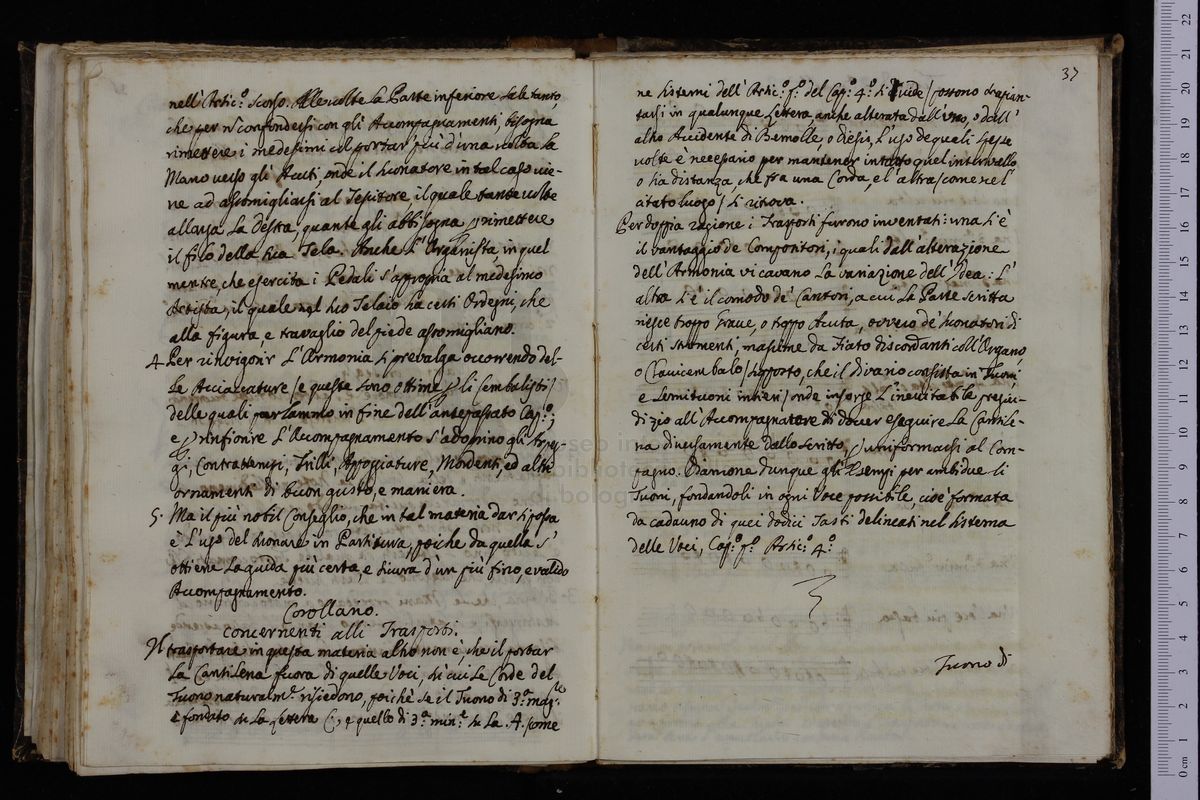 nell'Artic.º scorso. Alle volte la Parte inferiore sale tanto,
che per nō confondersi con gli Accompagnamenti, bisogna
rimettere i medesimi col portar più d'una volta la
Mano verso gli Acuti, onde il Suonatore in tal caso vie-
ne ad assomigliarsi al Tessitore, il quale tante volte
allarga la Destra, quante gli abbisogna rimettere
il filo della sua Tela. Anche l'Organista, in quel
mentre, che esercita i Pedali s'approssia al medesimo
Artista, il quale nel suo Telaio ha certi Ordegni, che
alla figura, e travaglio del piede assomigliano.
4. Per rinvigorir l'Armonia si prevalga occorrendo del-
le Acciaccature /e queste sono ottime li Cembalisti/
delle quali parlammo in fine dell'antepassato Cap.º;
e infiorire l'Accompagnamento s'adoprino gli Arpeg-
gi, Contrattempi, Trilli, Appoggiature, Mordenti, ed altri
ornamenti di buon gusto, e maniera.
5. Ma il più nobil Conseglio, che in tal materia dar si possa
è l'uso del suonare in Partitura, poiche da quella s'
ottiene la guida più certa, e sicura d'un più fino, e valido
Accompagnamento.
Corollario.
concernenti alli Trasporti.
Il trasportare in questa materia altro non è, che il portar
la Cantilena fuora di quelle Voci, sù cui le Corde del
Tuono naturalm.te risiedono, poichè se il Tuono di 3.ª mag.re
è fondato su la lettera C., e quello di 3.ª min.e su la .A. /come
37
ne sistemi dell'Artic.º p.º del Cap.º 4.º si vide/ possono trapian-
tarsi in qualunque lettera, anche alterata dall'uno, o dall'
altro Accidente di Bemolle, o diesis, l'uso de quali spesse
volte è necessario per mantener intatto quel intervallo
o sia distanza, che fra una Corda, e l'altra /come nel
citato luogo/ si ritrova.
Per doppia ragione i Trasporti furono inventati: una si è
il vantaggio de Compositori, i quali dall'alterazione
dell'Armonia vi cavano la variazione dell'Idea: L'
altra si è il comodo de' Cantori, a cui la Parte scritta
riesce troppo Grave, o troppo Acuta, ovvero de' Suonatori di
certi Stromenti, massime da Fiato discordanti coll'Organo,
o Clavicembalo /supposto, che il divario consista in Tuoni,
e Semituoni intieri/ onde insorge l'inevitabile pregiu-
dizio all'Accompagnatore di dover eseguire la Cantile-
na diversamente dallo scritto, uniformarsi al Com-
pagno. Daremo dunque gli Esempi per ambidue li
Tuoni, fondandoli in ogni Voce possibile, cioè formata
da cadauno di quei dodici Tasti delineati nel sistema
delle Voci, Cap.º p.º Artic.º 4.º
Tuono di